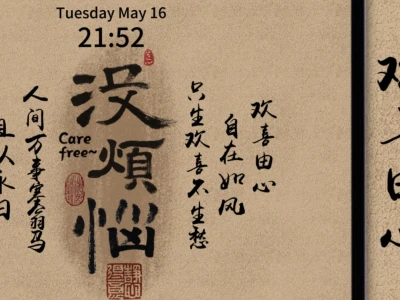 Tuesday May 16
21:52
欢喜由心
自在如风
只生欢喜不生愁
没煩惱
Care
free~
人间万事塞翁马
且以永日